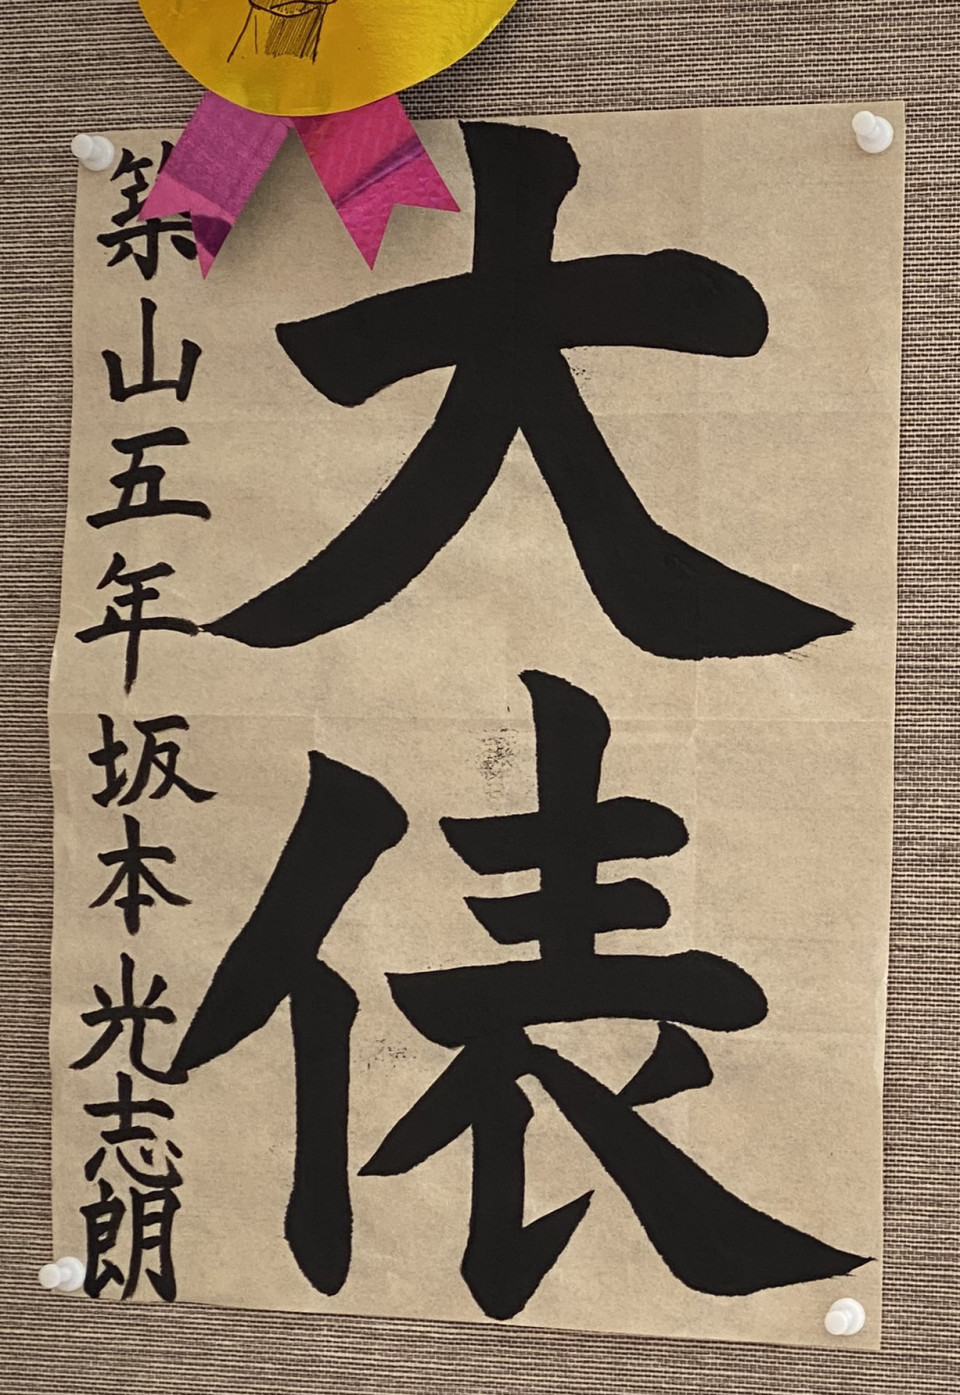 大俵
築山五年 坂本光志朗